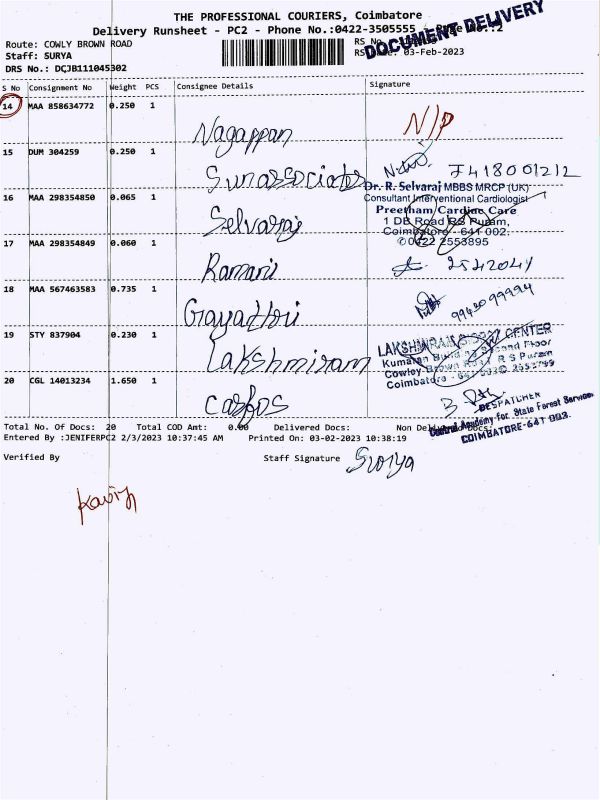 THE PROFESSIONAL COURIERS, Coimbatore
Delivery Runsheet - PC2 - Phone No.:0422-3505555 - Page No.:2
DOCUMENT DELIVERY
Route: COWLY BROWN ROAD
RS No.
Staff: SURYA
RS Date: 03-Feb-2023
DRS No.: DCJB111045302
S No Consignment No Weight PCS Consignee Details Signature
14 MAA 858634772 0.250 1
Nagappan N/P
15 DUM 304259 0.250 1
Sunassociates 7418001212
16 MAA 298354850 0.065 1
Dr. R. Selvaraj MBBS MRCP (UK)
Consultant Interventional Cardiologist
Preetham Cardiac Care
1 DB Road RS Puram,
Coimbatore - 641 002.
✆0422 2553895
Selvaraj
17 MAA 298354849 0.060 1
Ramani 2542041
18 MAA 567463583 0.735 1
Gayathri 9943099994
19 STY 837904 0.230 1
LAKSHMIRAM CENTER
Kumaran Building Second Floor
Cowley Brown Road R S Puram
Coimbatore - 641 002
Lakshmiram
20 CGL 14013234 1.650 1
Casfos
DESPATCHER
Central Academy for State Forest Service
COIMBATORE-641 003.
Total No. Of Docs: 20 Total COD Amt: 0.00 Delivered Docs: Non Delivered Docs:
Entered By :JENIFERPC2 2/3/2023 10:37:45 AM Printed On: 03-02-2023 10:38:19
Verified By Staff Signature Surya